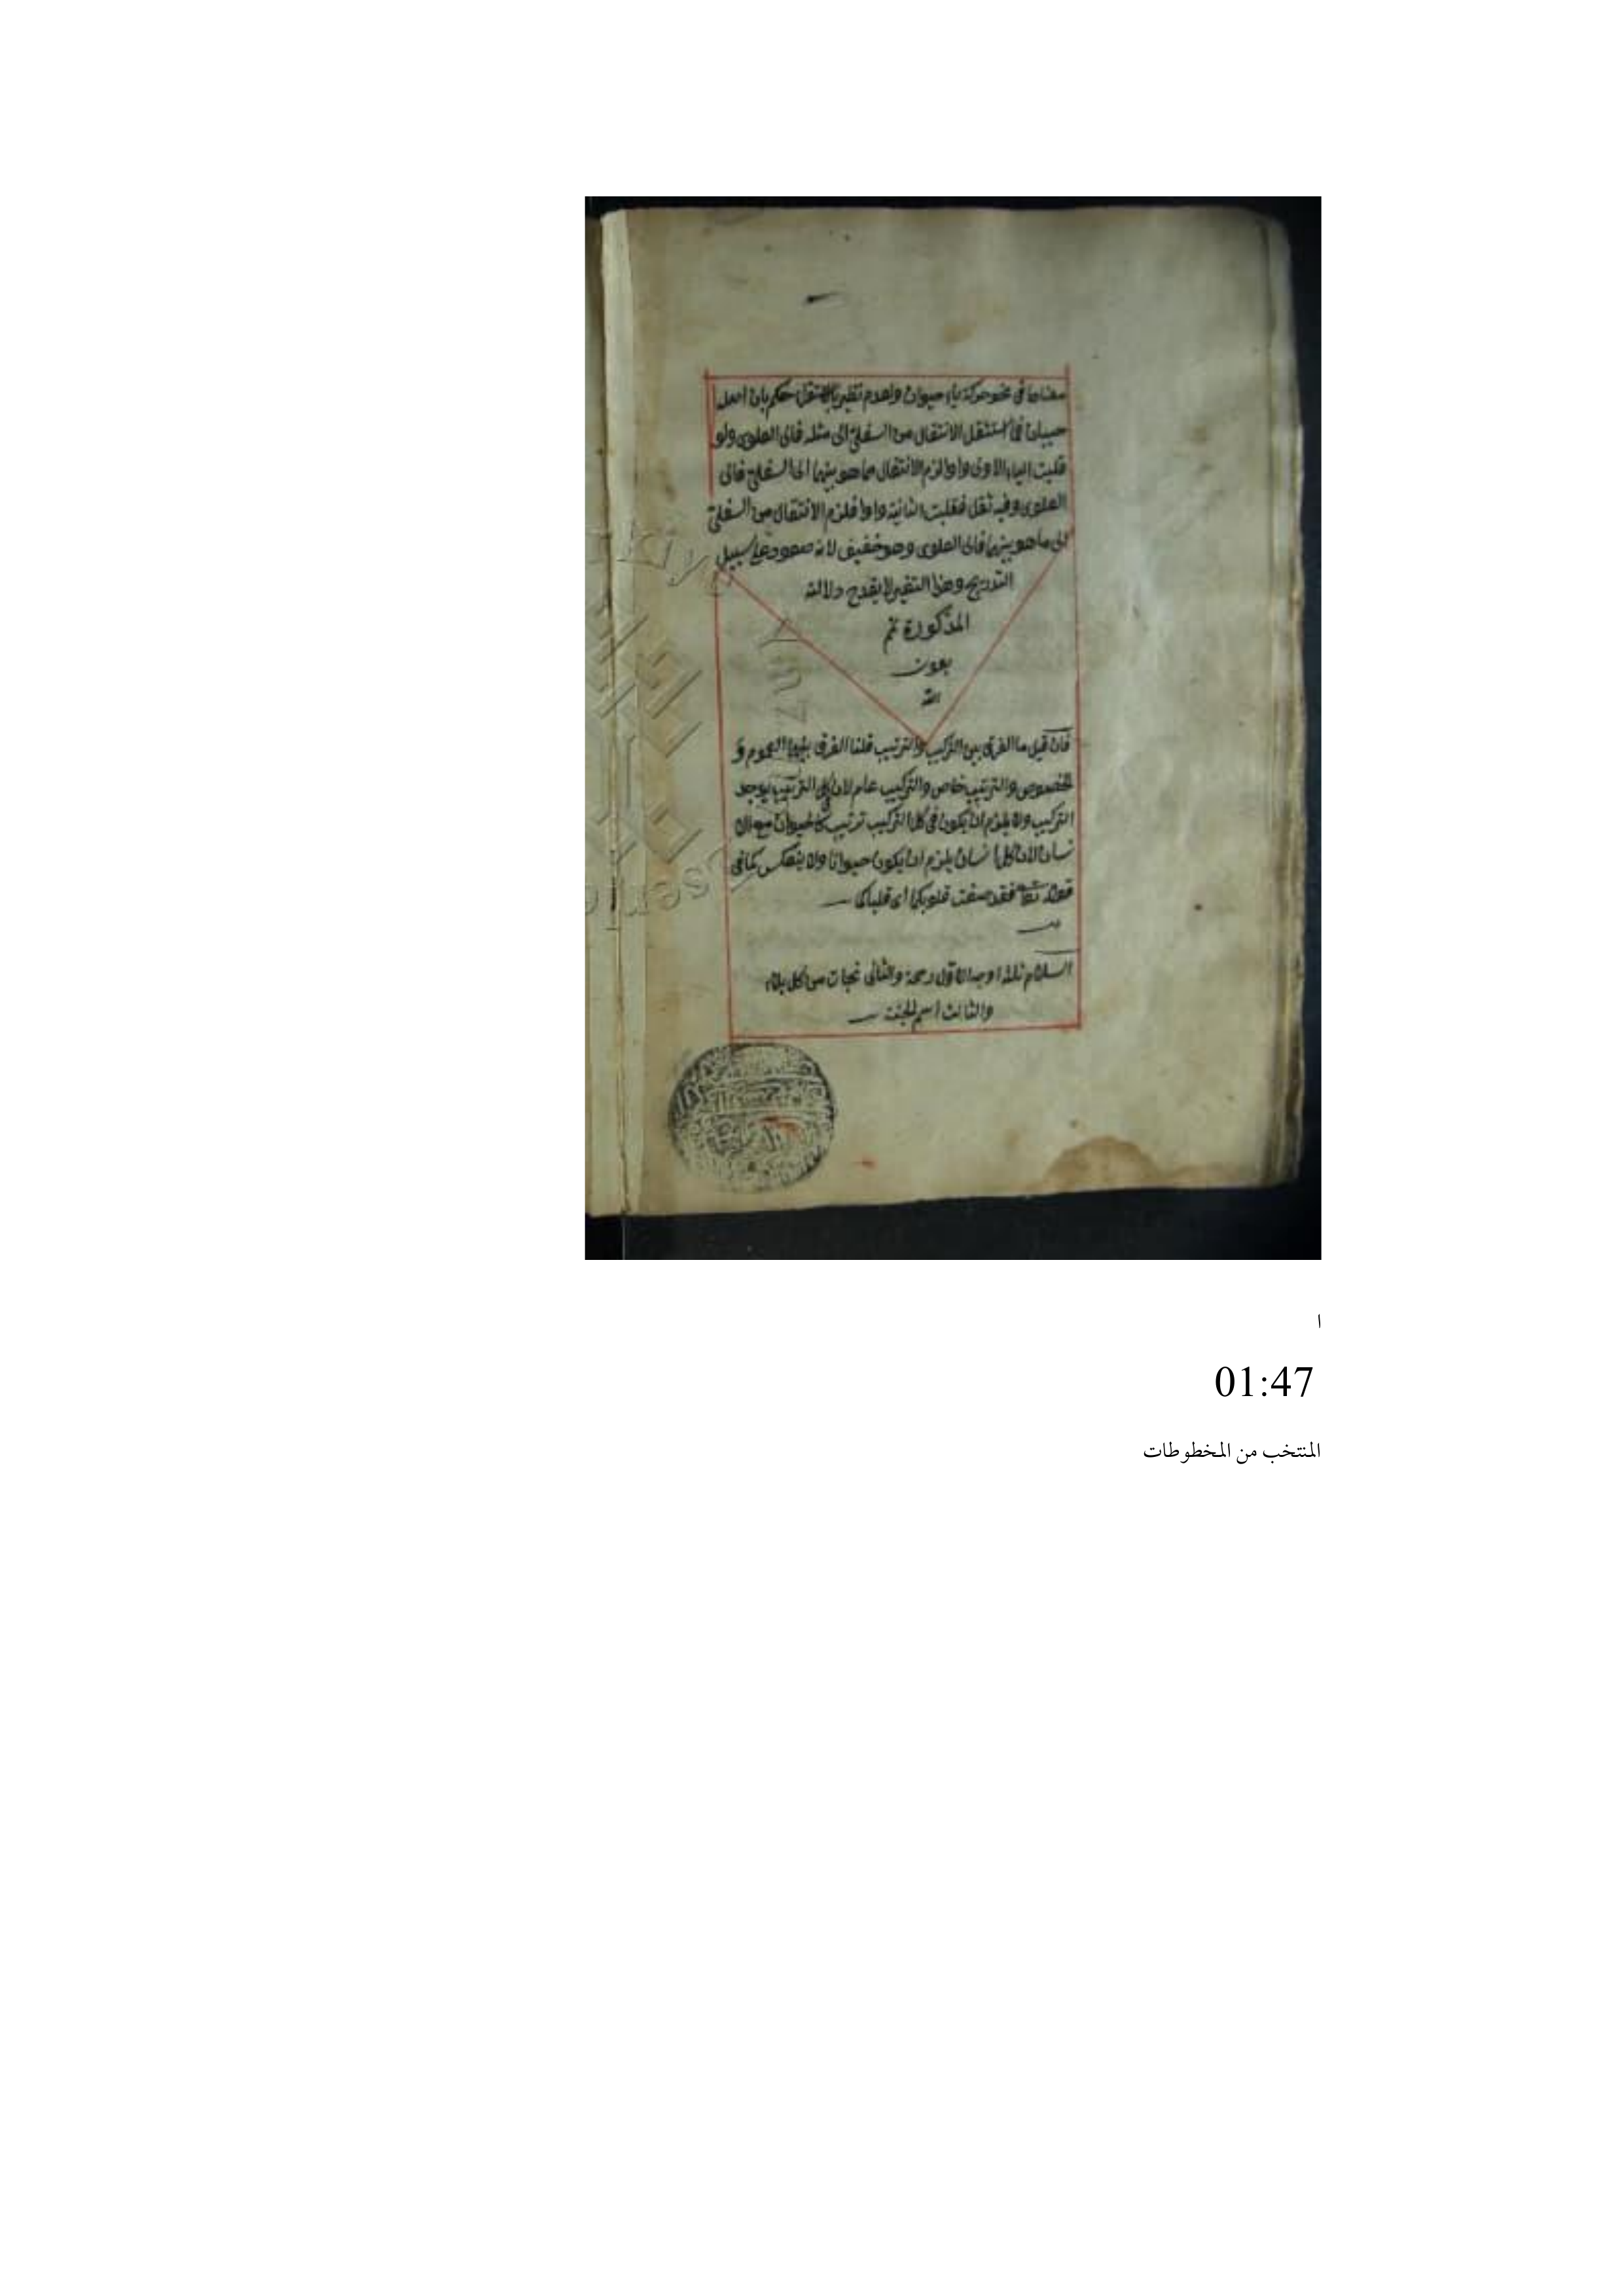 معناها في نحو حركة ياء حيوان ولعدم نظير بالاستقلال حكم بان اصله
حييان فاستثقل الانتقال من السفلي الى مثله فالى العلوي ولو
قلبت الياء الاولى واوا لزم الانتقال مما هو بينهما الى السفلي فالى
العلوي وفيه ثقل فقلبت الثانية واوا فلزم الانتقال من السفلي
الى ما هو بينهما فالى العلوي وهو خفيف لانه صعود على سبيل
التدريج وهذا التغير لا يقدح دلالته
المذكورة تم
بعون
الله
فان قيل ما الفرق بين التركيب والترتيب قلنا الفرق بينهما العموم و
الخصوص والترتيب خاص والتركيب عام لان كل الترتيب يوجد
التركيب ولا يلزم ان يكون في كل التركيب ترتيب كالحيوان مع الان
نسان لان كل انسان يلزم ان يكون حيوانا ولا ينعكس كما في
قوله تعا فقد صغت قلوبكما اى قلباكما
السلام ثلثة اوجه الاول رحمة والثاني نجات من كل بلاء
والثالث اسم الجنة
ا
01:47
المنتخب من المخطوطات